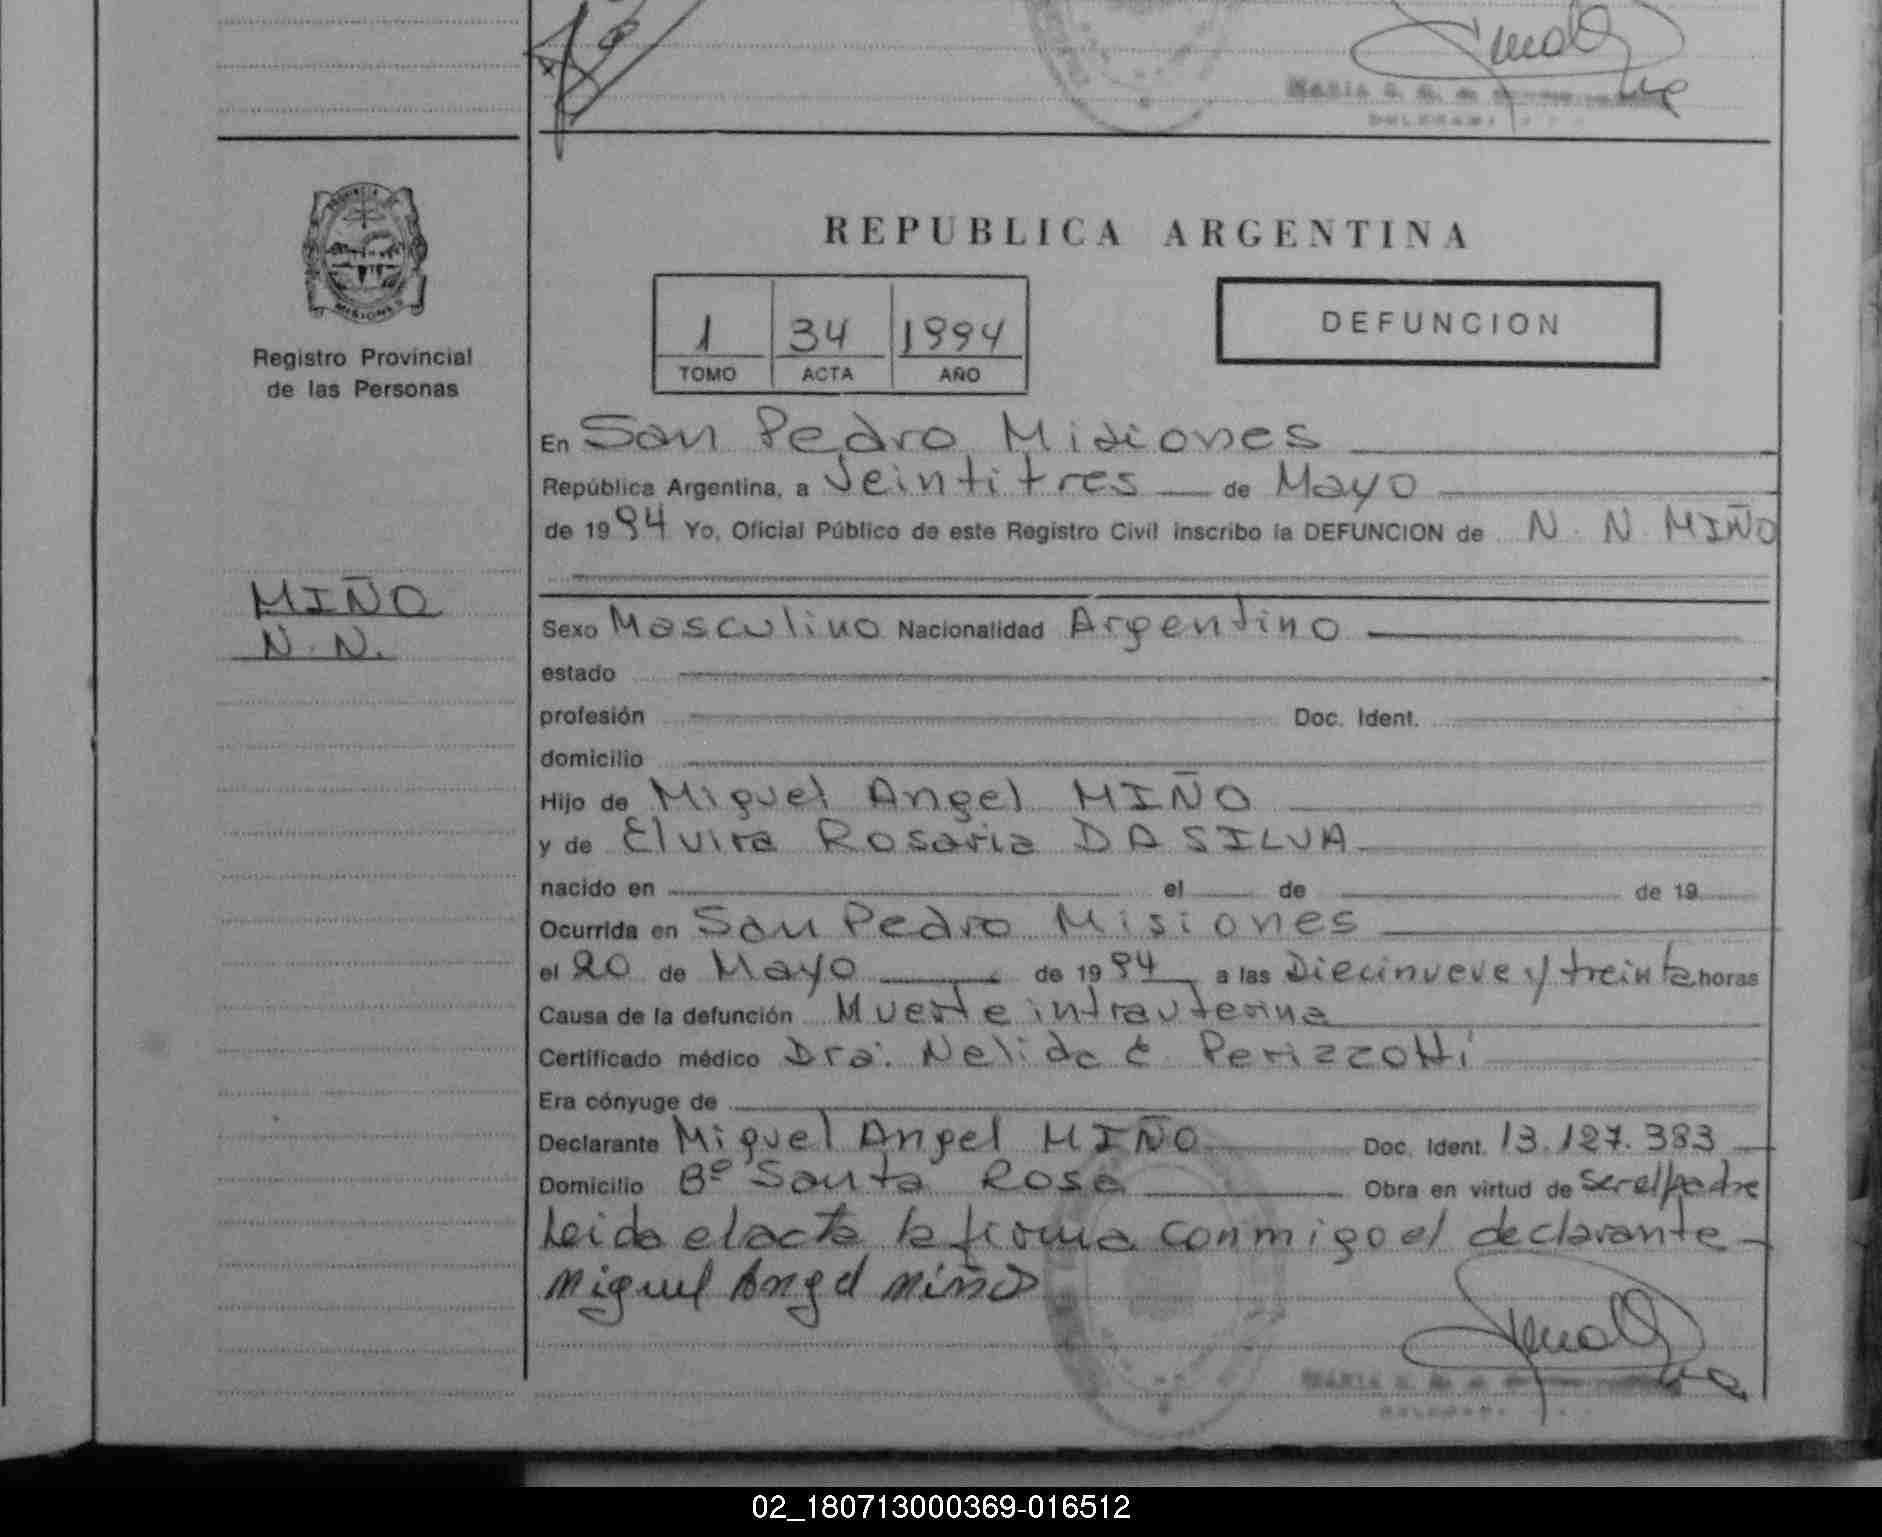 REPUBLICA ARGENTINA
Registro Provincial
de las Personas
1 34 1994
TOMO ACTA AÑO
DEFUNCION
En San Pedro Misiones
República Argentina, a Veintitres de Mayo
de 1994 Yo, Oficial Público de este Registro Civil inscribo la DEFUNCION de N. N. MIÑO
MIÑO
N. N.
Sexo Masculino Nacionalidad Argentino
estado
profesión Doc. Ident.
domicilio
Hijo de Miguel Angel MIÑO
y de Elvira Rosaria DA SILVA
nacido en el de de 19
Ocurrida en San Pedro Misiones
el 20 de Mayo de 1994 a las Diecinueve y treinta horas
Causa de la defunción Muerte intrauterina
Certificado médico Dra. Nelida E Perizzotti
Era cónyuge de
Declarante Miguel Angel MIÑO Doc. Ident. 13.127.383
Domicilio Bº Santa Rosa Obra en virtud de ser el padre
Leida el acta la firma conmigo el declarante
Miguel Angel Miño
02_180713000369-016512